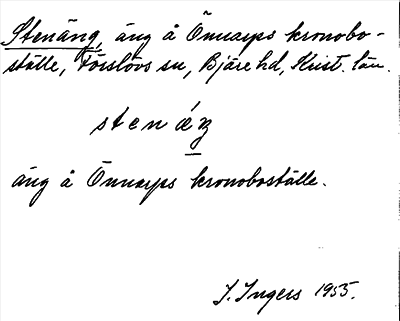 Stenäng, äng å Önnarps kronobo-
ställe, Förslövs sn, Bjäre hd, Krist. län.
äng å Önnarps kronoboställe.
I. Ingers 1955.